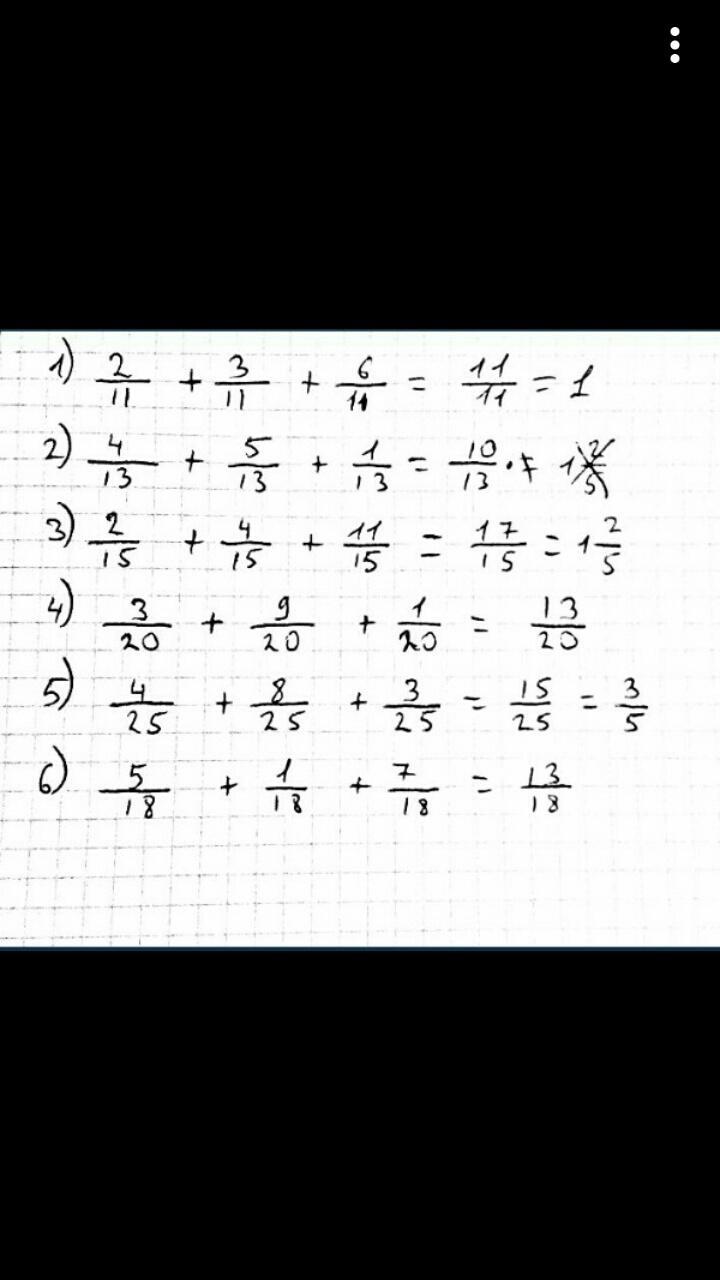 1) 2/11 + 3/11 + 6/11 = 11/11 = 1
2) 4/13 + 5/13 + 1/13 = 10/13
3) 2/15 + 4/15 + 11/15 = 17/15 = 1 2/5
4) 3/20 + 9/20 + 1/20 = 13/20
5) 4/25 + 8/25 + 3/25 = 15/25 = 3/5
6) 5/18 + 1/18 + 7/18 = 13/18